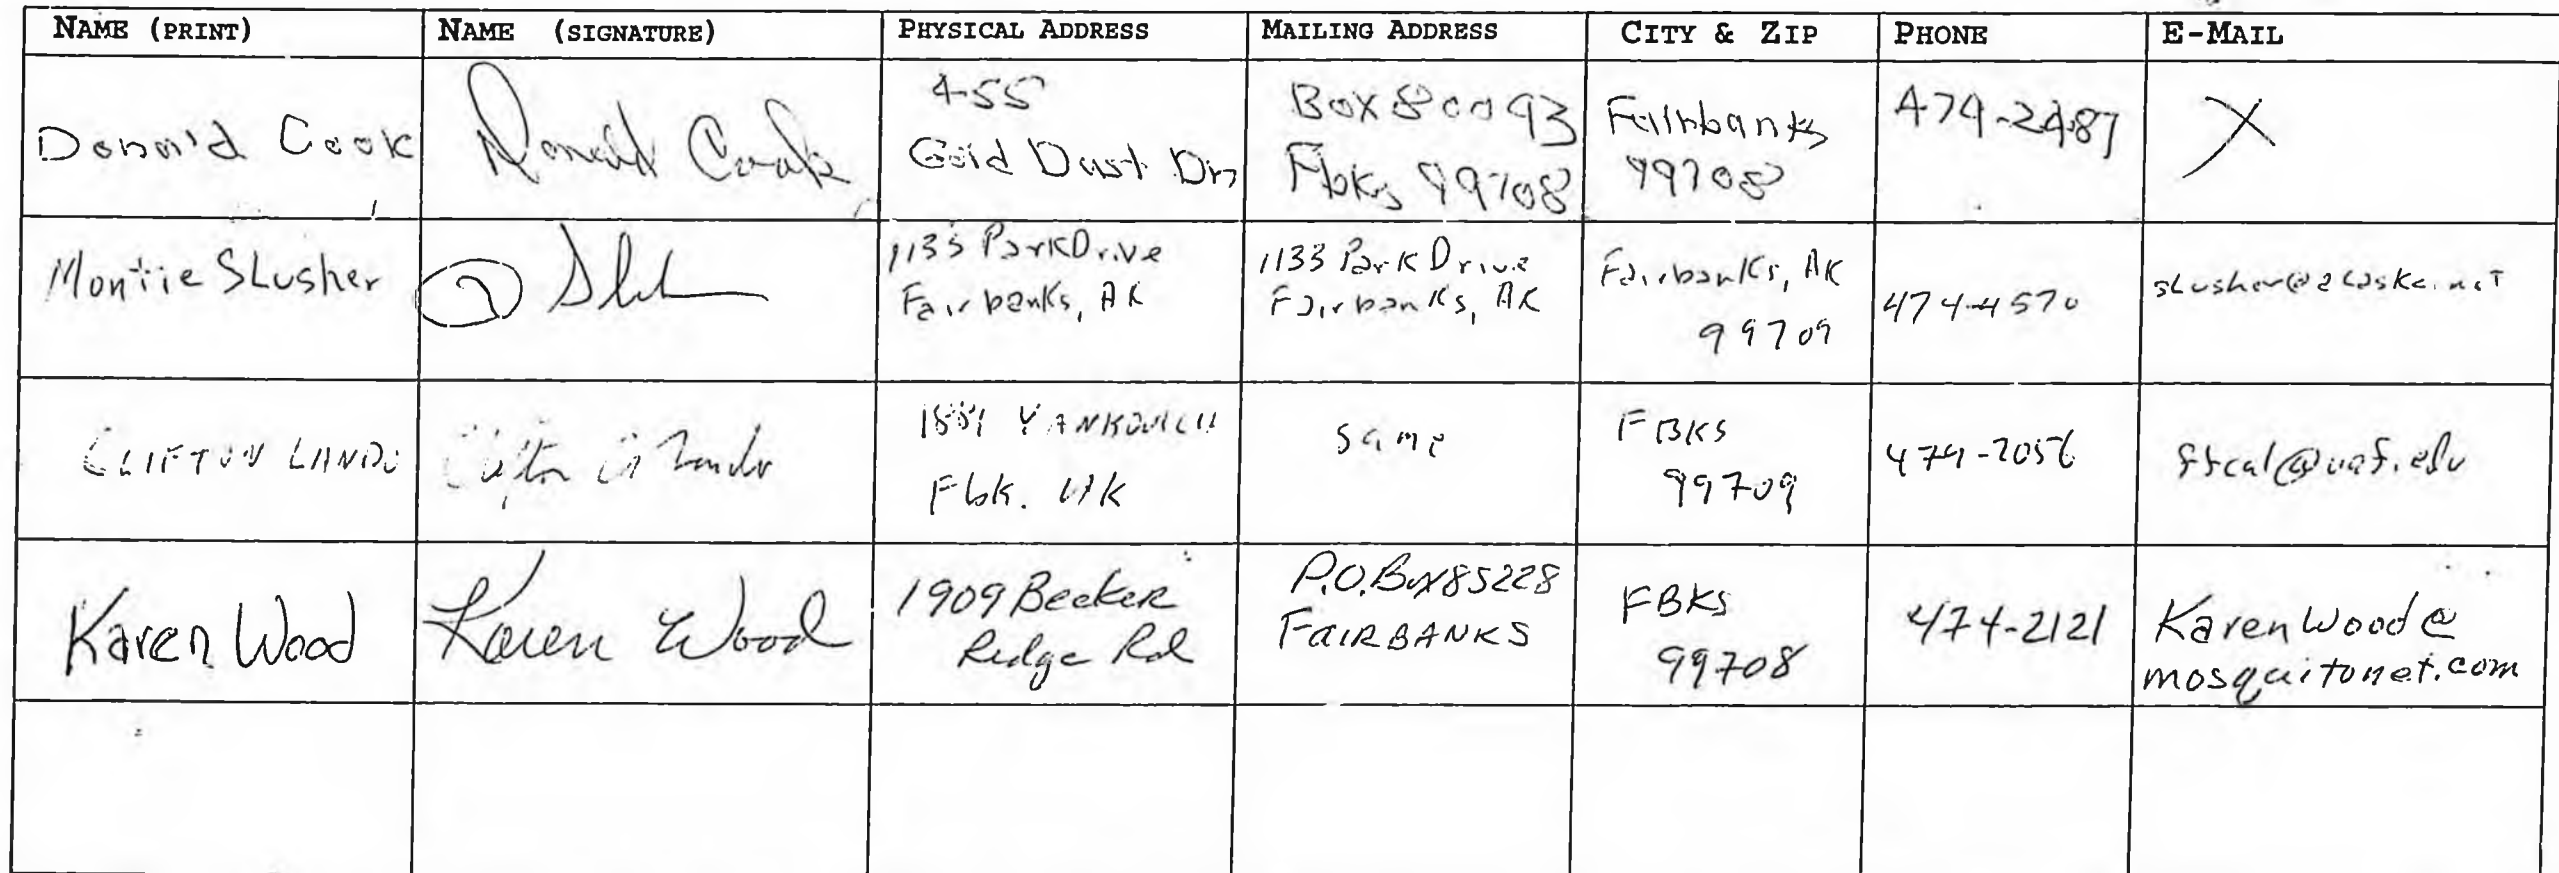 NAME (PRINT)
NAME (SIGNATURE)
PHYSICAL ADDRESS
MAILING ADDRESS
CITY & ZIP
PHONE
E-MAIL
Donald Cook
Donald Cook
455
Gold Dust Dr
Box 80093
Fbks 99708
Fairbanks
99708
474-2487
X
Montie Slusher
1133 Park Drive
Fairbanks, AK
1133 Park Drive
Fairbanks, AK
Fairbanks, AK
99709
474-4570
slusher@alaska.net
CLIFTON LANDO
Clifton Lando
1881 YANKOVICH
Fbk. AK
same
FBKS
99709
474-7056
ffcal@uaf.edu
Karen Wood
Karen Wood
1909 Becker
Ridge Rd
P.O. Box 85228
FAIRBANKS
FBKS
99708
474-2121
Karenwood@
mosquitonet.com